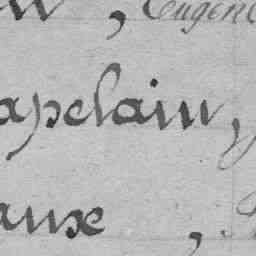 , Eugen
apelain,
aux ,